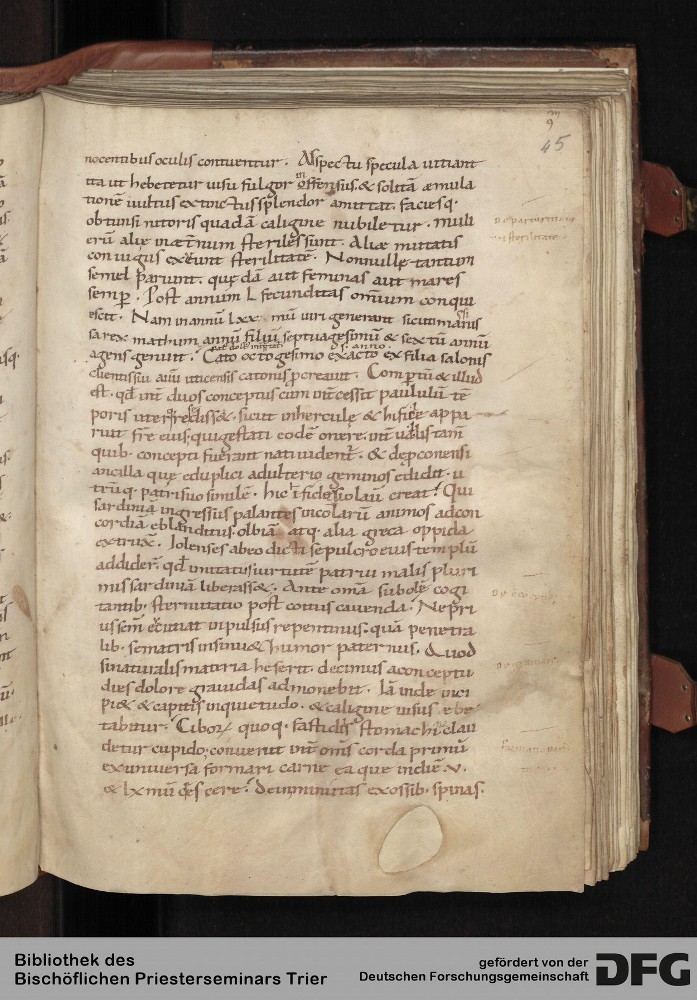 45
nocentibus oculis contuentur. Aspectu specula uitiant
ita ut hebetetur uisu fulgor offensus. & solitā æmula
tionē uultus extinctus splendor amittat. facies q.
obtunsi nitoris quadā caligine nubiletur. muli
erū alię inæt̄num steriles sunt. Aliæ mutatis
coniugiis exeunt sterilitatē. Nonnullę tantum
semel parunt. quędā aut feminas aut mares
semꝑ. Post annum L fecunditas omnium conqui
escit. Nam in annū Lxxx. mū uiri generant sicuti masinis
sa rex mathum annū filiū septuagesimū & sextū annū
agens genuit. Cato octogesimo exacto ex filia salonis
clientis sui auū uticensis catonis ꝓcreauit. Compertū & illud
est. qđ int̄ duos conceptus cum int̄cessit paululū tē
poris uterq. resedisset. sicut in hercule & hificle appa
ruit fr̄e eius. qui gestati eodē onere. int̄uallis tam̄
quib. concepti fuerant nati uident̄. & de proconensi
ancilla quę e duplici adulterio geminos edidit. u
trūq. patri suo similē. hic fidesiolau creat. Qui
sardiniā ingressus palantes incolarū animos ad con
cordiā eblanditus. olbiā atq. alia greca oppida
extruxit. Iolenses ab eo dicti sepulcro eius templū
addider̄. qđ imitatus uirtutē patrui malis pluri
mis sardiniā liberasset. Ante omīa subolē cogi
tantib. sternutatio post coitus cauenda. Ne pri
us sem̄ excutiat inpulsus repentinus. quā penetra
lib. se matris insinuet humor paternus. Quod
si naturalis materia heserit. decimus a conceptu
dies dolore grauidas admonebit. Iā inde inci
piet & capitis inquietudo. & caligine uisus ebe
tabitur. Ciborꝝ quoq. fastidiis stomachi clau
detur cupido. conuenit int̄ om̄s corda primū
ex uniuersa formari carne eaque in diē v.
& lx mū crescere. dein minui as ex ossib. spinas.
Bibliothek des
Bischöflichen Priesterseminars Trier
gefördert von der
Deutschen Forschungsgemeinschaft
DFG